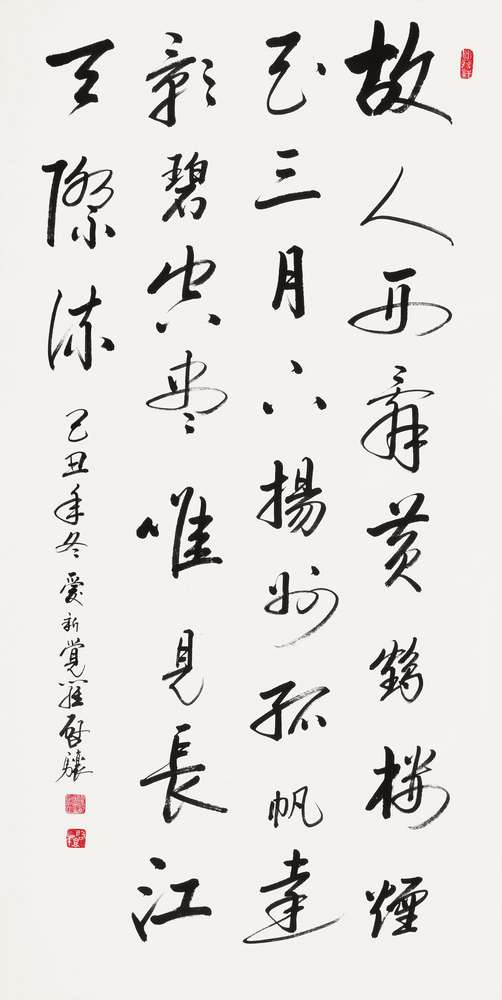 故人西辭黄鶴樓煙
花三月下揚州孤帆遠
影碧空盡唯見長江
天際流
己丑年冬愛新覺羅啟驤